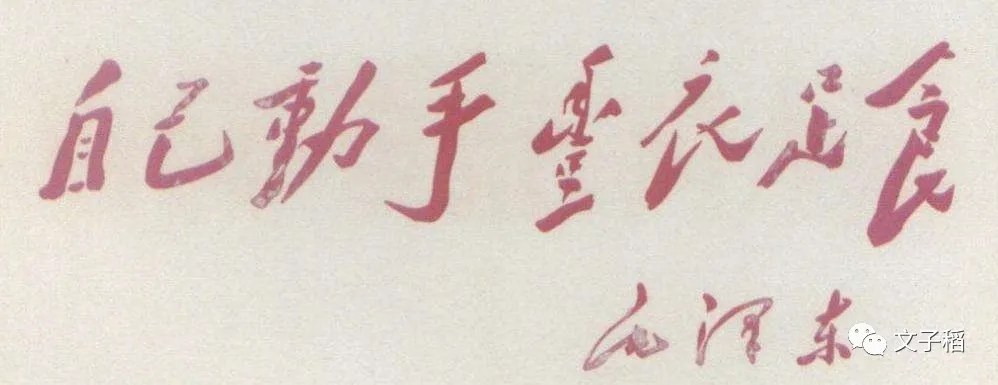 自己動手豐衣足食
毛泽东
文子稻